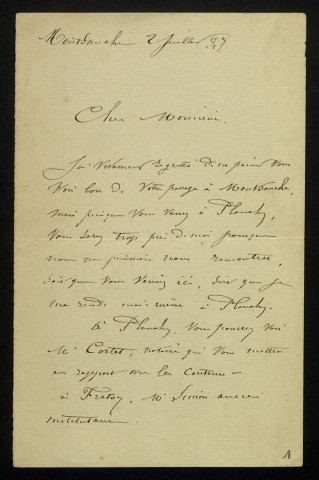 Montsauche 2 Juillet 87
Cher Monsieur.
J'ai vivement regretté de ne point vous
voir lors de votre passage à Montsauche,
mais puisque vous venez à Planchez,
vous serez trop près de moi pour que
nous ne puissions nous rencontrer,
soit que vous veniez ici, soit que je
me rende moi même à Planchez.
à Planchez, vous pourrez voir
Mr Cortet, notaire qui vous mettra
en rapport avec les conteurs -
à Fretoy, Mr Simon ancien
instituteur
1